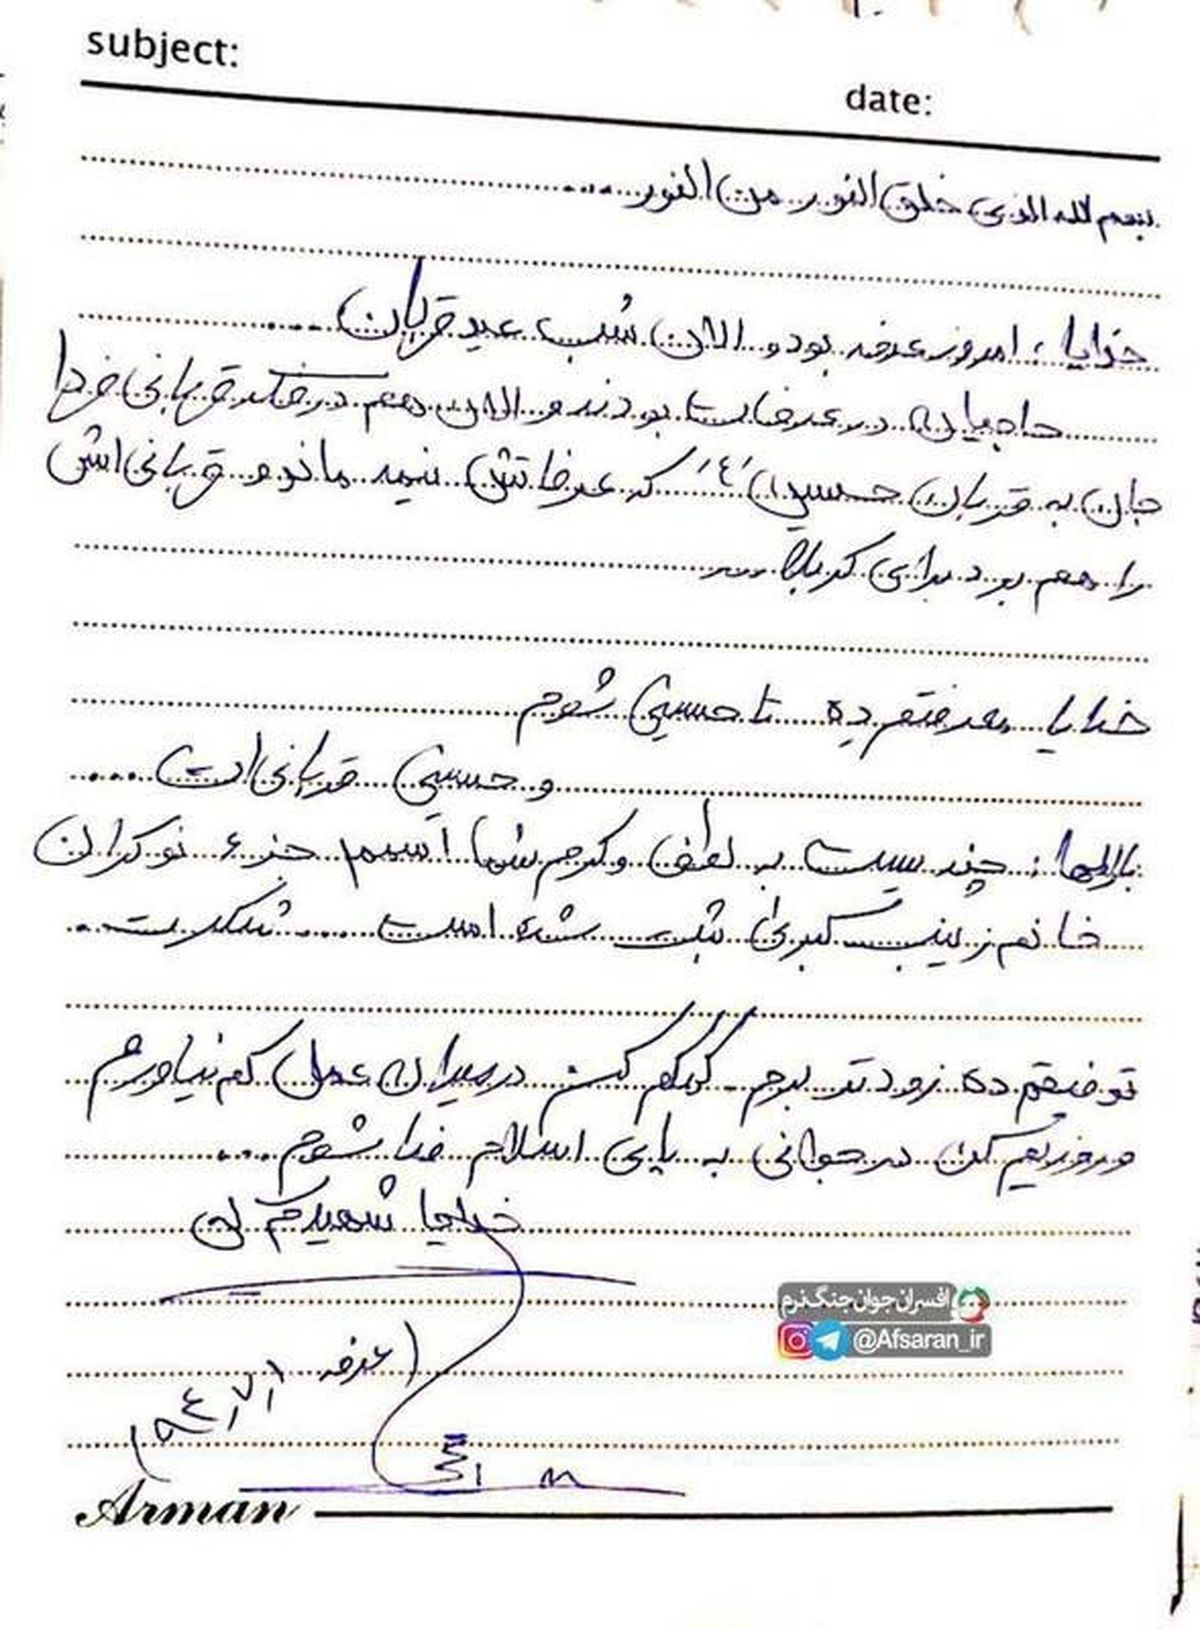 subject:
date:
بسم الله الذی خلق النور من النور....
خدایا ، امروز عرفه بود و الان شب عید قربان ....
حاجیان در عرفات بودند و الان هم در فکر قربانی فردا
جان به قربان حسین (ع) که عرفاتش نیمه ماند و قربانی‌اش
را هم برد برای کربلا ....
خدایا معرفتم ده تا حسینی شوم
و حسینی قربانی‌ات ....
بارالها ؛ چندیست به لطف و کرم شما اسمم جزء نوکران
خانم زینب کبری ثبت شده است .... شکرت..
توفیقم ده زودتر بروم کمکم کن در میدان عمل کم نیاورم
و روزیم کن در جوانی به پای اسلام فدا شوم ....
خدایا شهیدم کن
عرفه
۱۳۹٤/۷/۱
افسران جوان جنگ نرم
@Afsaran_ir
Arman